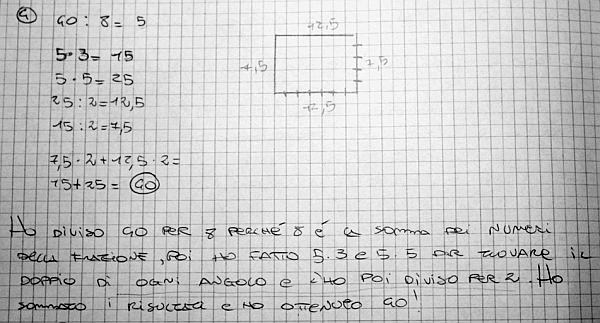 4) 40 : 8 = 5
5 · 3 = 15
5 · 5 = 25
25 : 2 = 12,5
15 : 2 = 7,5
7,5 · 2 + 12,5 · 2 =
15 + 25 = 40
12,5
7,5
7,5
12,5
HO DIVISO 40 PER 8 PERCHÉ 8 È LA SOMMA DEI NUMERI
DELLA FRAZIONE, POI HO FATTO 5·3 e 5·5 PER TROVARE IL
DOPPIO DI OGNI ANGOLO E L'HO POI DIVISO PER 2. HO
SOMMATO I RISULTATI E HO OTTENUTO 40!